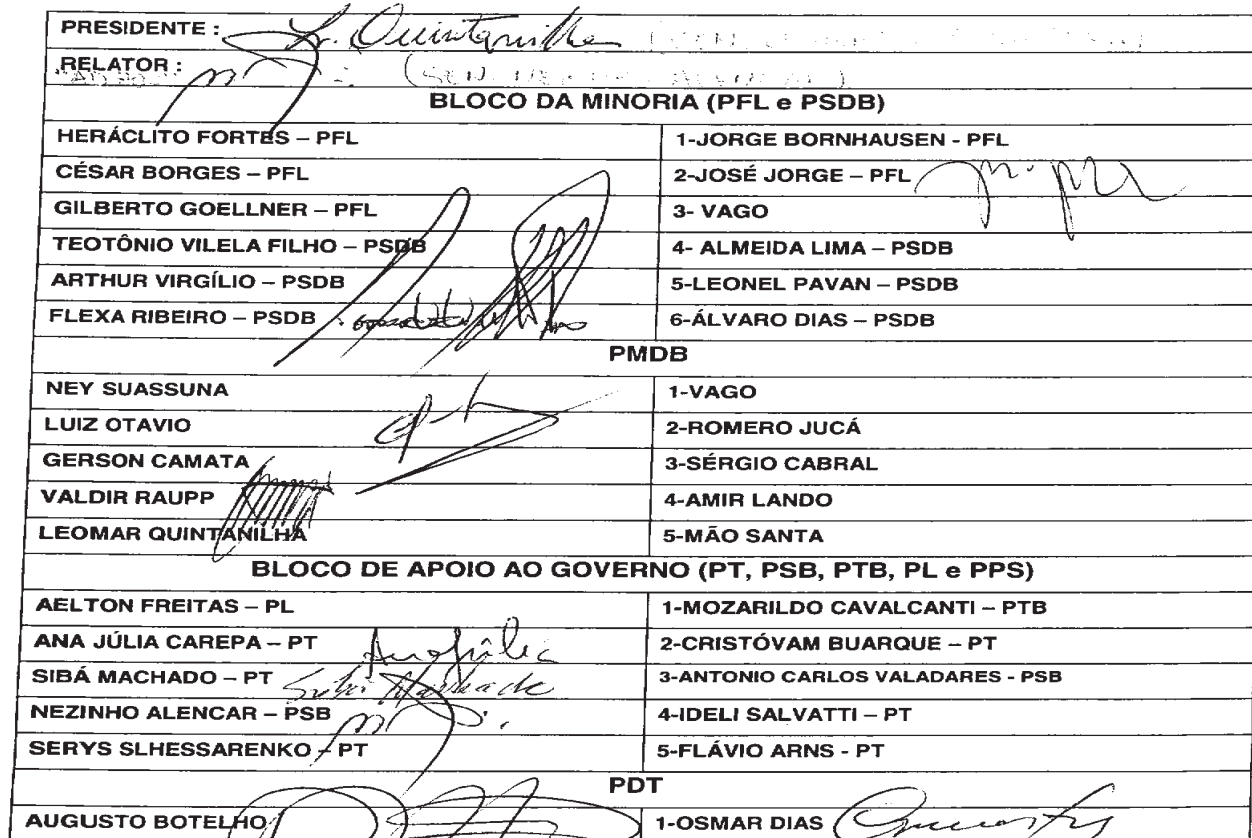 PRESIDENTE : L. Quintanilha
RELATOR :
BLOCO DA MINORIA (PFL e PSDB)
HERÁCLITO FORTES – PFL 1-JORGE BORNHAUSEN - PFL
CÉSAR BORGES – PFL 2-JOSÉ JORGE – PFL
GILBERTO GOELLNER – PFL 3- VAGO
TEOTÔNIO VILELA FILHO – PSDB 4- ALMEIDA LIMA – PSDB
ARTHUR VIRGÍLIO – PSDB 5-LEONEL PAVAN – PSDB
FLEXA RIBEIRO – PSDB 6-ÁLVARO DIAS – PSDB
PMDB
NEY SUASSUNA 1-VAGO
LUIZ OTAVIO 2-ROMERO JUCÁ
GERSON CAMATA 3-SÉRGIO CABRAL
VALDIR RAUPP 4-AMIR LANDO
LEOMAR QUINTANILHA 5-MÃO SANTA
BLOCO DE APOIO AO GOVERNO (PT, PSB, PTB, PL e PPS)
AELTON FREITAS – PL 1-MOZARILDO CAVALCANTI – PTB
ANA JÚLIA CAREPA – PT Ana Júlia 2-CRISTÓVAM BUARQUE – PT
SIBÁ MACHADO – PT Sibá Machado 3-ANTONIO CARLOS VALADARES - PSB
NEZINHO ALENCAR – PSB 4-IDELI SALVATTI – PT
SERYS SLHESSARENKO – PT 5-FLÁVIO ARNS - PT
PDT
AUGUSTO BOTELHO 1-OSMAR DIAS